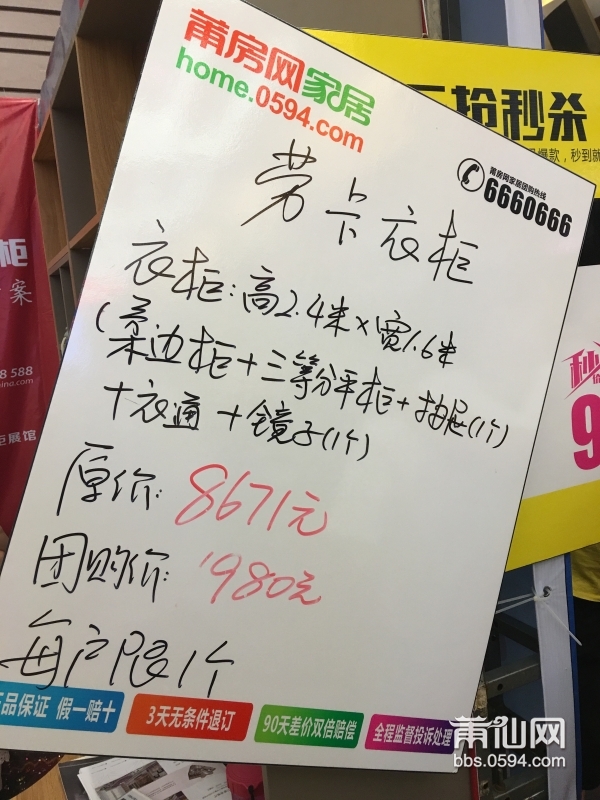 莆房网家居
home.0594.com
莆房网家居团购热线
6660666
劳卡衣柜
衣柜:高2.4米×宽1.6米
(柔边柜+三等分平柜+抽屉(1个)
+衣通+镜子(1个)
原价:8671元
团购价:1980元
每户限1个
品保证 假一赔十
3天无条件退订
90天差价双倍赔偿
全程监督投诉处理
抢秒杀
爆款,秒到就
秒
9
柜
案
8 588
ina.com
展馆
莆仙网
bbs.0594.com